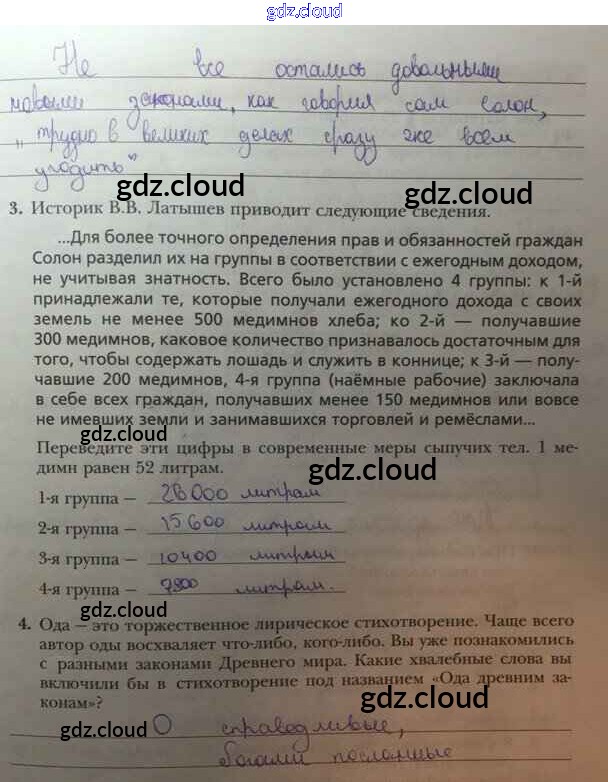 gdz.cloud
Не все остались довольными
новыми законами, как говорил сам Солон,
„трудно в великих делах сразу же всем
угодить"
gdz.cloud
gdz.cloud
3. Историк В.В. Латышев приводит следующие сведения.
...Для более точного определения прав и обязанностей граждан
Солон разделил их на группы в соответствии с ежегодным доходом,
не учитывая знатность. Всего было установлено 4 группы: к 1-й
принадлежали те, которые получали ежегодного дохода с своих
земель не менее 500 медимнов хлеба; ко 2-й — получавшие
300 медимнов, каковое количество признавалось достаточным для
того, чтобы содержать лошадь и служить в коннице; к 3-й — полу-
чавшие 200 медимнов, 4-я группа (наёмные рабочие) заключала
в себе всех граждан, получавших менее 150 медимнов или вовсе
не имевших земли и занимавшихся торговлей и ремёслами...
gdz.cloud
Переведите эти цифры в современные меры сыпучих тел. 1 ме-
димн равен 52 литрам.
gdz.cloud
1-я группа — 26000 литрам
2-я группа — 15600 литрам
3-я группа — 10400 литрым
4-я группа — 7800 литрам.
gdz.cloud
4. Ода — это торжественное лирическое стихотворение. Чаще всего
автор оды восхваляет что-либо, кого-либо. Вы уже познакомились
с разными законами Древнего мира. Какие хвалебные слова вы
включили бы в стихотворение под названием «Ода древним за-
конам»?
gdz.cloud
gdz.cloud
О справедливые,
богами посланные